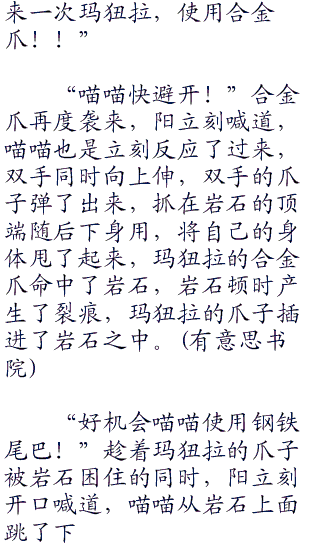 来一次玛狃拉，使用合金
爪！！”
“喵喵快避开！”合金
爪再度袭来，阳立刻喊道，
喵喵也是立刻反应了过来，
双手同时向上伸，双手的爪
子弹了出来，抓在岩石的顶
端随后下身用，将自己的身
体甩了起来，玛狃拉的合金
爪命中了岩石，岩石顿时产
生了裂痕，玛狃拉的爪子插
进了岩石之中。(有意思书
院)
“好机会喵喵使用钢铁
尾巴！”趁着玛狃拉的爪子
被岩石困住的同时，阳立刻
开口喊道，喵喵从岩石上面
跳了下